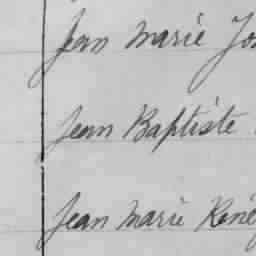 Jean Marie Jos
Jean Baptiste
Jean Marie René